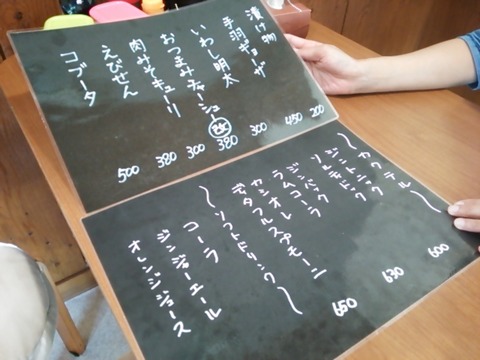 漬け物 200
手羽ギョーザ 450
いわし明太 300
おつまみチャーシュー 改 380
肉みそキューリ 300
えびせん 380
コブータ 500
〜カクテル〜
ジントニック 600
ソルティドッグ
ジンバック 630
ラムコーラ
カシオレ 650
スプモーニ
〜ソフトドリンク〜
コーラ
ジンジャーエール
オレンジジュース